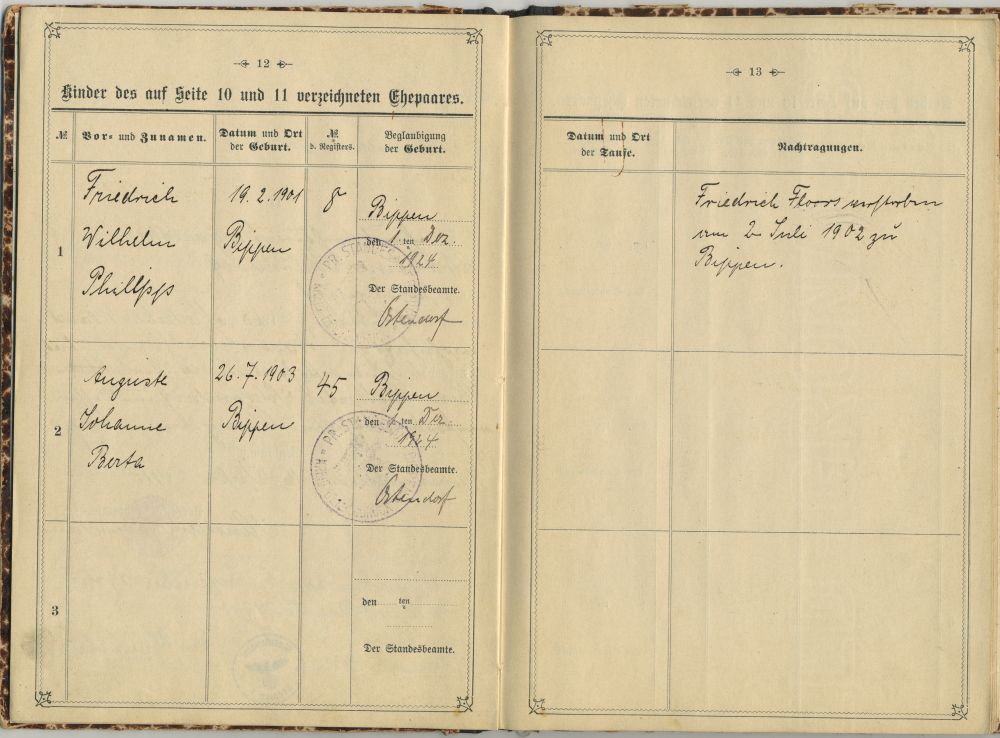 12
Kinder des auf Seite 10 und 11 verzeichneten Ehepaares.
№ Vor- und Zunamen. Datum und Ort der Geburt. № d. Registers. Beglaubigung der Geburt.
1
Friedrich
Wilhelm
Phillipp
19.2.1901
Bippen
8
Bippen
den 1. ten Dez.
1924
Der Standesbeamte.
Ostendorf
2
Auguste
Johanne
Berta
26.7.1903
Bippen
45
Bippen
den 1. ten Dez.
1924
Der Standesbeamte.
Ostendorf
3
den ten
Der Standesbeamte.
13
Datum und Ort der Taufe. Nachtragungen.
Friedrich Floors verstorben
am 2 Juli 1902 zu
Bippen.